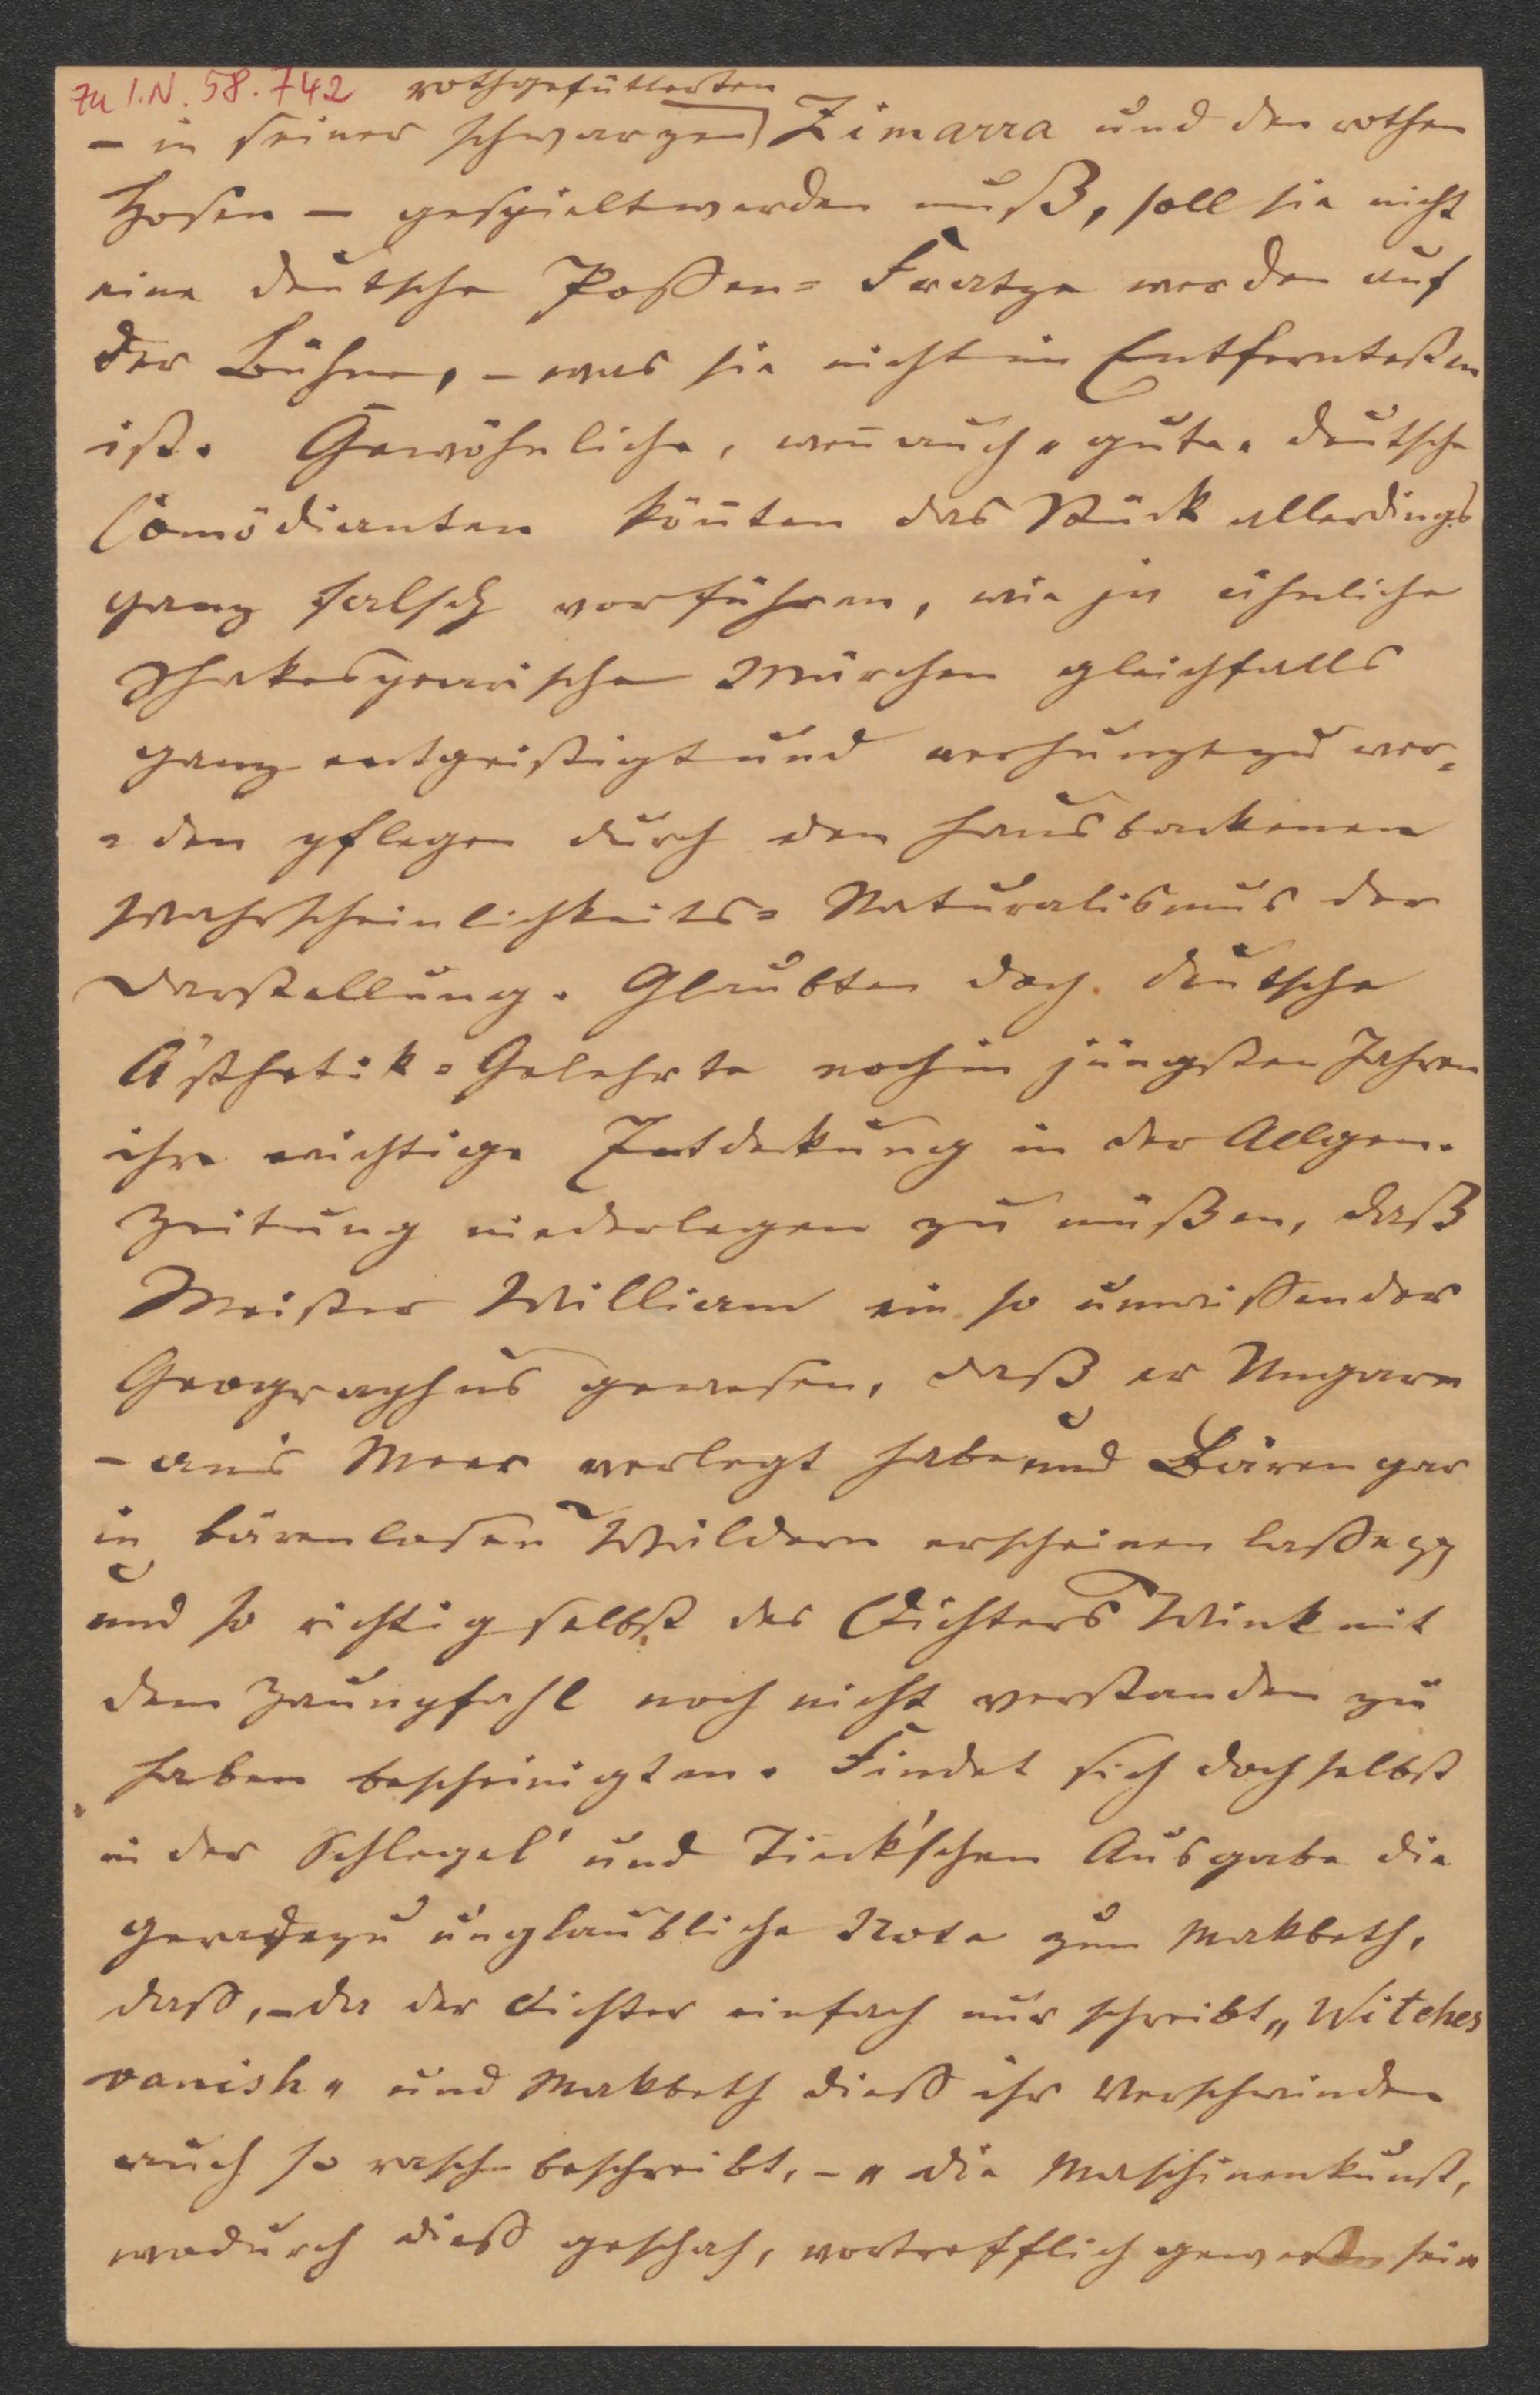 zu I.N. 58.742 rothgefütterten
– in seiner schwarzen Zimarra und den rothen
Hosen – gespielt werden muß, soll sie nicht
eine deutsche Possen= Fratze werden auf
der Bühne, – was sie nicht im Entferntesten
ist. Gewöhnliche, weñ auch "gute" deutsche
Comödianten köñten das Stück allerdings
ganz falsch vorführen, wie ja ähnliche
Shakespearische Märchen gleichfalls
ganz entgeistigt und verhunzt zu wer=
=den pflegen durch den hausbackenen
Wahrscheinlichkeits= Naturalismus der
Darstellung. Glaubten doch deutsche
Ästhetik=Gelehrte noch in jüngsten Jahren
ihre wichtige Entdekung in der Allgem.
Zeitung niederlegen zu müßen, daß
Meister William ein so unwissender
Geographus gewesen, daß er Ungarn
– an's Meer verlegt habe und Bären gar
in bärenlosen Wäldern erscheinen lasse pp
und so richtig selbst des Dichters Wink mit
dem Zaunpfahl noch nicht verstanden zu
haben bescheinigten. Findet sich doch selbst
in der Schlegel' und Tieck'schen Ausgabe die
geradezu unglaubliche Note zum Makbeth,
dass, – da der Dichter einfach nur schreibt „Witches
vanish" und Makbeth diess ihr Verschwinden
auch so rasch beschreibt, – "die Maschinenkunst,
wodurch diess geschah, vortrefflich gewesen sein